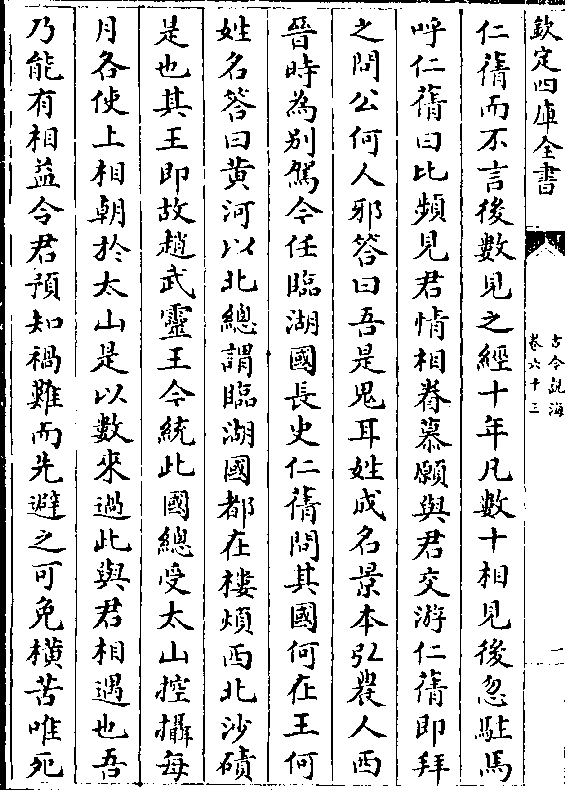 欽定四庫全書
古今說海
卷六十三
一
仁蒨而不言後數見之經十年凡數十相見後忽駐馬
呼仁蒨曰比頻見君情相眷慕願與君交游仁蒨即拜
之問公何人邪答曰吾是鬼耳姓成名景本弘農人西
晉時為别駕今任臨湖國長史仁蒨問其國何在王何
姓名答曰黄河以北總謂臨湖國都在樓煩西北沙磧
是也其王即故趙武靈王今統此國總受太山控攝每
月各使上相朝於太山是以數來過此與君相遇也吾
乃能有相益令君預知禍難而先避之可免横苦唯死